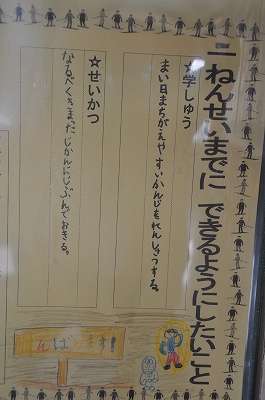 二ねんせいまでに できるようにしたいこと
☆学しゅう
まい日まちがえやすいかんじをれんしゅうする。
☆せいかつ
なるべくきまったじかんにじぶんでおきる。
がんばります!